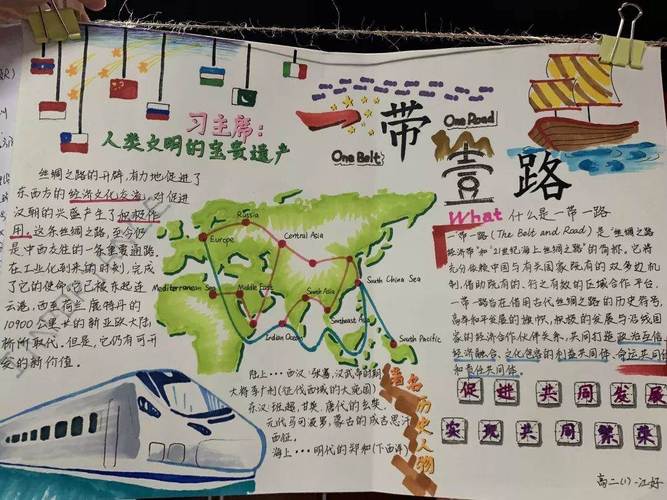 习主席:
人类文明的宝贵遗产
丝绸之路的开辟,有力地促进了
东西方的经济文化交流,对促进
汉朝的兴盛产生了积极作
用。这条丝绸之路,至今仍
是中西交往的一条重要通路,
在工业化到来的时刻,完成
了它的使命,它已被东起连
云港,西至荷兰鹿特丹的
10900公里长的新亚欧大陆
桥所取代。但是,它仍有可开
发的新价值。
一带壹路
One Belt
One Road
What 什么是一带一路
一带一路(The Belt and Road)是"丝绸之路
经济带"和"21世纪海上丝绸之路"的简称。它将
充分依靠中国与有关国家既有的双多边机
制,借助既有的、行之有效的区域合作平台,
一带一路旨在借用古代丝绸之路的历史符号,
高举和平发展的旗帜,积极的发展与沿线国
家的经济合作伙伴关系,共同打造政治互信、
经济融合、文化包容的利益共同体、命运共同体
和责任共同体。
促进共同发展
实现共同繁荣
Russia
Europe
Central Asia
Mediterranean Sea
Middle East
South Asia
South China Sea
Southeast Asia
Indian Ocean
South Pacific
陆上···西汉:张骞,汉武帝时期
大将李广利(征伐西域的大宛国)
东汉:班超,甘英,唐代的玄奘,
元代马可波罗,蒙古的成吉思汗
西征。
海上···明代的郑和(下西洋)
著名历史人物
高二(1)-江好